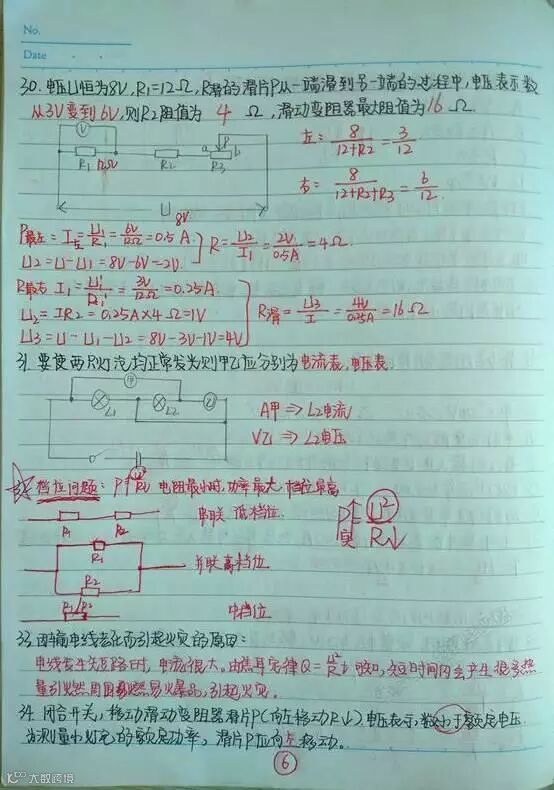 No.
Date
30. 电压U恒为8V, R1=12Ω, R滑的滑片P从一端滑到另一端的过程中, 电压表示数
从3V变到6V, 则R2阻值为 4 Ω, 滑动变阻器最大阻值为16 Ω.
V
R1 12Ω R2 a P b R3
U 8V
左: 8/(12+R2) = 3/12
右: 8/(12+R2+R3) = 6/12
P最左= I左= U1/R1 = 6V/12Ω = 0.5A
U2 = U-U1 = 8V-6V=2V
R= U2/I1 = 2V/0.5A = 4Ω
P最右 I1= U1'/R1' = 3V/12Ω = 0.25A
U2= IR2 = 0.25A×4Ω=1V
U3= U-U1-U2 = 8V-3V-1V=4V
R滑= U3/I = 4V/0.25A = 16Ω
31. 要使两只灯泡均正常发光则甲乙应分别为电流表, 电压表.
甲
L1 L2 乙
A甲 ⇒ L2电流
V乙 ⇒ L2电压
档位问题: 电阻最小时, 功率最大, 档位最高
R1 R2 串联 低档位
R1
并联高档位
R2
R1 R2 中档位
P实↑= U²/R↓
33. 因输电线老化而引起火灾的原因:
电线发生短路时, 电流很大. 由焦耳定律Q= U²/R t 可知, 短时间内会产生很多热
量引燃周围易燃易爆品, 引起火灾.
34. 闭合开关, 移动滑动变阻器滑片P(向左移动R↓) 电压表示数小于额定电压
为测量小灯泡的额定功率, 滑片P应向左移动。
6
大数跨境